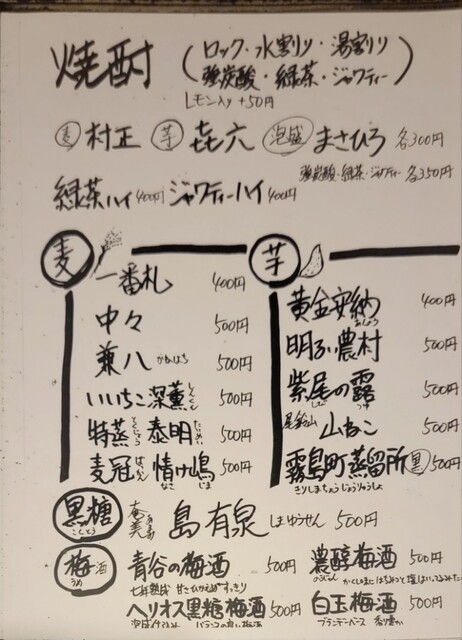 焼酎（ロック・水割り・湯割り
強炭酸・緑茶・ジャワティー）
レモン入り +50円
麦 村正 芋 㐂六 泡盛 まさひろ 各300円
強炭酸・緑茶・ジャワティー 各350円
緑茶ハイ 400円 ジャワティーハイ 400円
麦
一番札 400円
中々 500円
兼八 かねはち 500円
いいちこ深薫 しんくん 500円
特蒸 とくじょう 泰明 たいめい 500円
麦冠 ばっかん 情け嶋 なさ じま 500円
芋
黄金安納 あんのう 400円
明るい農村 500円
紫尾の露 しび つゆ 500円
尾鈴山 山ねこ 500円
霧島町蒸留所 黒 500円
きりしまちょうじょうりゅうしょ
黒糖 こくとう 奄美 あまみ 島有泉 しまゆうせん 500円
梅酒 うめ
青谷の梅酒 500円
七年熟成 甘さひかえめすっきり
濃醇梅酒 500円
のうじゅん かくしあじにはちみつと
ヘリオス黒糖梅酒 500円
バランスの良い梅酒
白玉梅酒 500円
ブランデーベース 香り豊か